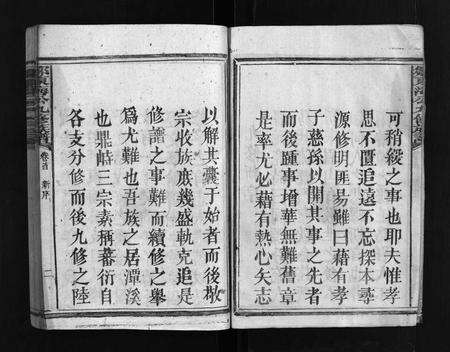 可稍緩之事也耶夫惟孝
思不匱追遠不忘探本尋
源修明匪易難曰藉有孝
子慈孫以開其事之先者
於後踵事增華無難舊章
是率尤必藉有熱心矢志
以解其囊于始者而後敬
宗收族庶幾盛軌克追是
修譜之事難而續修之舉
為尤難也吾族之居潭溪
也鼎峙三宗素稱蕃衍自
各支分修而後九修之陸
卷首 新序
二